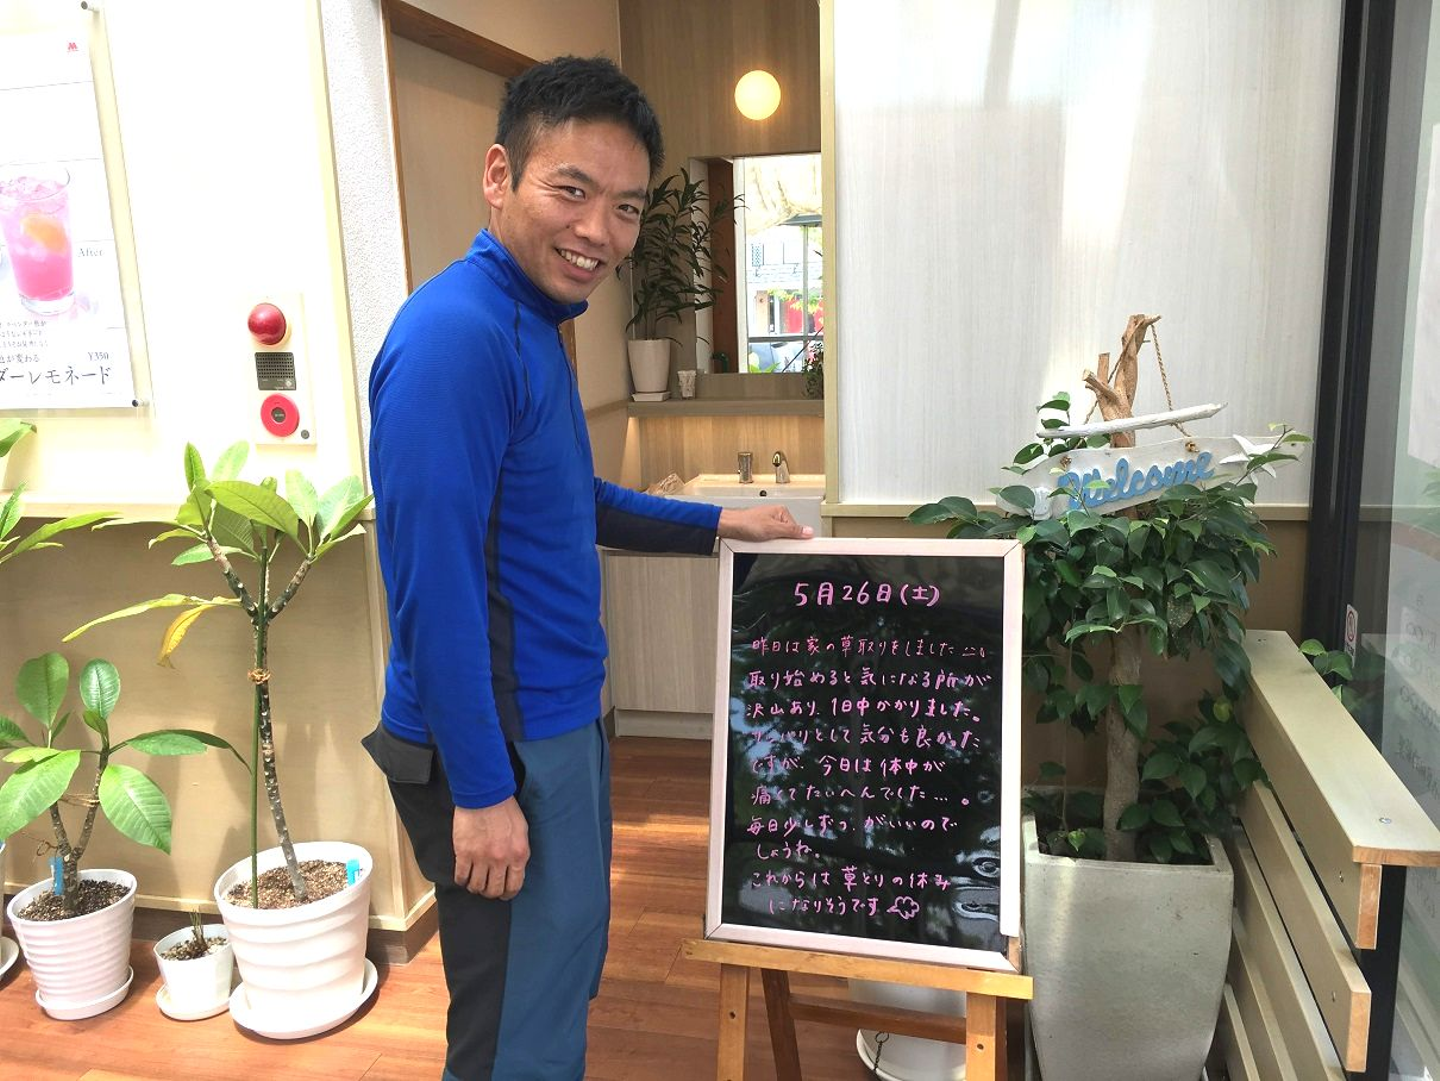 After
色が変わる ¥350
ダーレモネード
Welcome
5月26日(土)
昨日は家の草取りをしました
取り始めると気になる所が
沢山あり、1日中かかりました。
サッパリとして気分も良かった
ですが、今日は体中が
痛くてたいへんでした…。
毎日少しずつ、がいいので
しょうね。
これからは草とりの休み
になりそうです